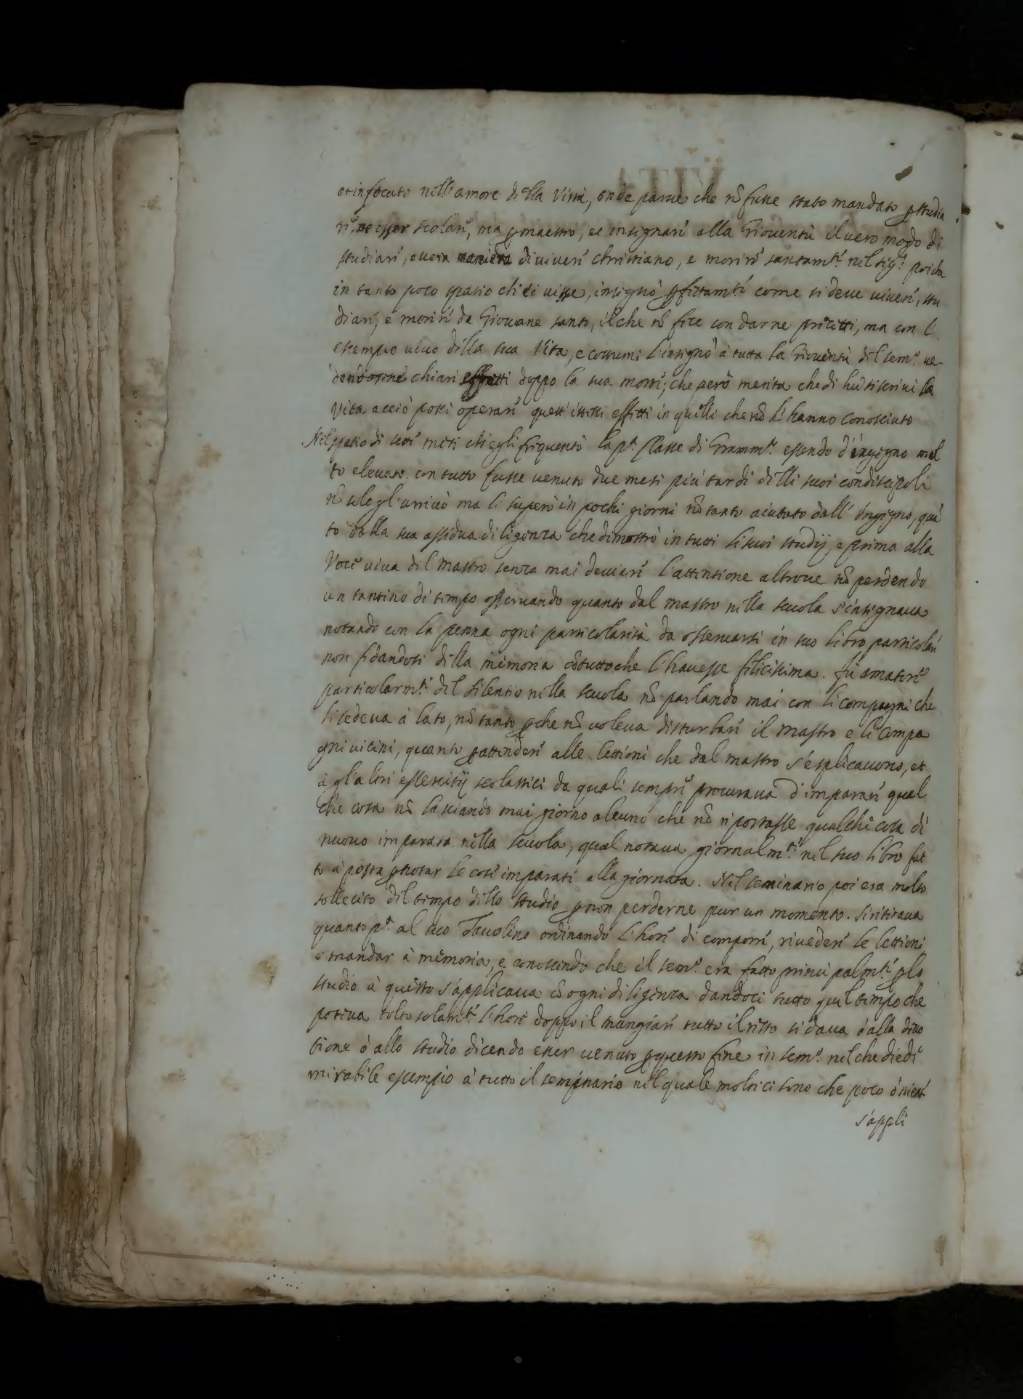 et infocato nell'amore della Virtù, onde parue che nõ fusse stato mandato p studia
rui, ne esser scolari, ma p maestro, et insignari alla Giouentù il uero modo di
studiari, e uera maniera di uiueri christiano, e moriri santam.te nel Sig.re poiche
in tanto poco spatio che ci uisse, insignò pfittamti come si deue uiueri, stu
diari, e moriri da Giouane santo, il che nõ fice con darne pricitti, ma con l'
esempio uiuo dilla sua Vita, e costumi l'insignò à tutta la Giouentù dil sem.o ue-
dendosine chiari effetti doppo la sua morti; che però merita che di lui si scriui la
Vita acciò possi operari quest'istissi effitti in quilli che nõ l'hanno conosciuto
Nel spatio di seti mesi che egli friquentò la p.a Classe di Gramm.ca essendo d'ingigno mol
to eleuato, con tutto fusse uenuto due mesi più tardi dilli suoi condiscipoli
nõ solo gl'arriuò ma li superò in pochi giorni nõ tanto aiutato dall'ingigno, quã
to dalla sua assidua diligenza che dimostrò in tutti li suoi studij, e prima alla
Voce uiua dil mastro senza mai deuiari l'attintione altroue nõ perdendo
un tantino di timpo osseruando quanto dal mastro nilla scuola s'insignaua
notando con la penna ogni particolarità da osseruarsi in suo libro particolari
non fidandosi dilla mémoria cõ tutto che l'hauesse filicissima. fù amatiss.o
particolarm.ti dil silentio nilla scuola nõ parlando mai con li compagni che
li sedeua à lato, nõ tanto pche nõ uoleua disturbari il mastro e li compa
gni uicini, quanto p attinderi alle lettioni che dal mastro s'esplicauono, et
à gl'altri essercitij scolastici da quali sempri procuraua d'imparari qual
che cosa nõ lasciando mai giorno alcuno che nõ riportasse qualchi cosa di
nuouo imparata nilla scuola, qual notaua giornalm.ti nel suo libro fat
to à posta p notar le cosi imparati alla giornata. Nel seminario poi era molto
sollecito dil timpo dillo studio p non perderne pur un momento. Si ritiraua
quanto p.a al suo Tauolino ordinando l'hori di comporri, riuederi le lettioni
e mandar à mémoria, e conoscindo che il sem.o era fatto principalm.ti p lo
studio à quisto s'applicaua cõ ogni diligenza dandoci tutto quil timpo che
potiua tolto solam.ti l'hori doppo il mangiari tutto il risto si daua ò alla diuo
tione ò allo studio dicendo esser uenuto p questo fine in sem.o nel che diedi
mirabile esempio à tutto il seminario nil quale molti ci sono che poco ò nienti
s'appli